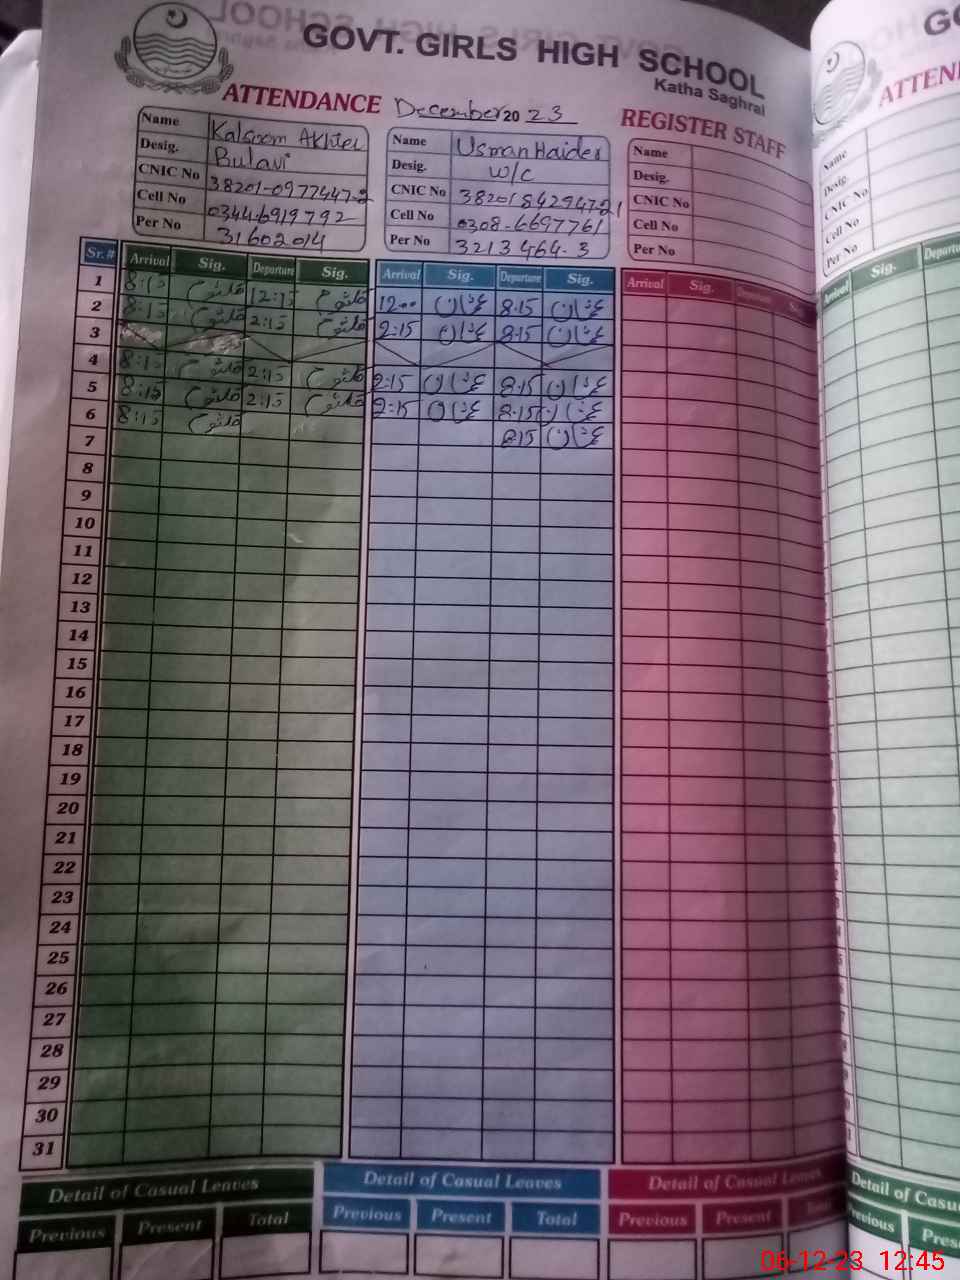 GOVT. GIRLS HIGH SCHOOL
Katha Saghral
ATTENDANCE December 20 23 REGISTER STAFF
Name Kalsoom Akhter
Desig. Bulavi
CNIC No 38201-0977447-2
Cell No 0344-6919792
Per No 31602014
Name Usman Haider
Desig. W/C
CNIC No 38201 8429472 1
Cell No 0308-6697761
Per No 3213464-3
Name
Desig.
CNIC No
Cell No
Per No
Sr.# Arrival Sig. Departure Sig. Arrival Sig. Departure Sig. Arrival Sig. Departure
1 8:15 کلثوم 12:15 کلثوم 12:00 عثمان 8:15 عثمان
2 8:15 کلثوم 2:15 کلثوم 2:15 عثمان 8:15 عثمان
3
4 8:15 کلثوم 2:15 کلثوم 2:15 عثمان 8:15 عثمان
5 8:15 کلثوم 2:15 کلثوم 2:15 عثمان 8:15 عثمان
6 8:15 کلثوم 8:15 عثمان
7
8
9
10
11
12
13
14
15
16
17
18
19
20
21
22
23
24
25
26
27
28
29
30
31
Detail of Casual Leaves Detail of Casual Leaves Detail of Casual Leaves
Previous Present Total Previous Present Total Previous Present
GO
ATTEN
Name
Desig.
CNIC No
Cell No
Per No
Arrival Sig. Departu
Detail of Casu
Previous Pres
06-12-23 12:45